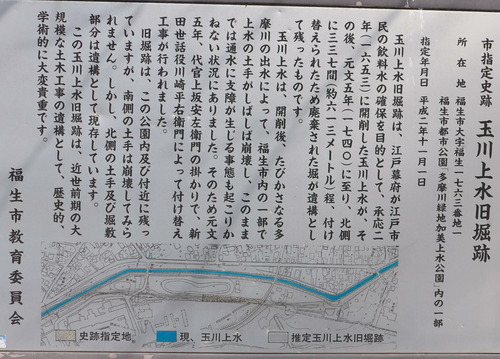 市指定史跡 玉川上水旧堀跡
所在地 福生市大字福生一七六三番地一
福生市都市公園「多摩川緑地加美上水公園」内の一部
指定年月日 平成二年十一月一日
玉川上水旧堀跡は、江戸幕府が江戸市
民の飲料水の確保を目的として、承応二
年(一六五三)に開削した玉川上水が、そ
の後、元文五年(一七四〇)に至り、北側
に三三七間(約六一三メートル)程、付け
替えられたため廃棄された堀が遺構とし
て残ったものです。
玉川上水は、開削後、たびかさなる多
摩川の出水によって、福生市内の一部で
上水の土手がしばしば崩壊し、このまま
では通水に支障が生じる事態も起こりか
ねない状況にありました。そのため元文
五年、代官上坂安左衛門の掛かりで、新
田世話役川崎平右衛門によって付け替え
工事が行われました。
旧堀跡は、この公園内及び付近に残っ
ていますが、南側の土手は崩壊してみら
れません。しかし、北側の土手及び堀敷
部分は遺構として現存しています。
この玉川上水旧堀跡は、近世前期の大
規模な土木工事の遺構として、歴史的、
学術的に大変貴重です。
福生市教育委員会
史跡指定地
現、玉川上水
推定玉川上水旧堀跡